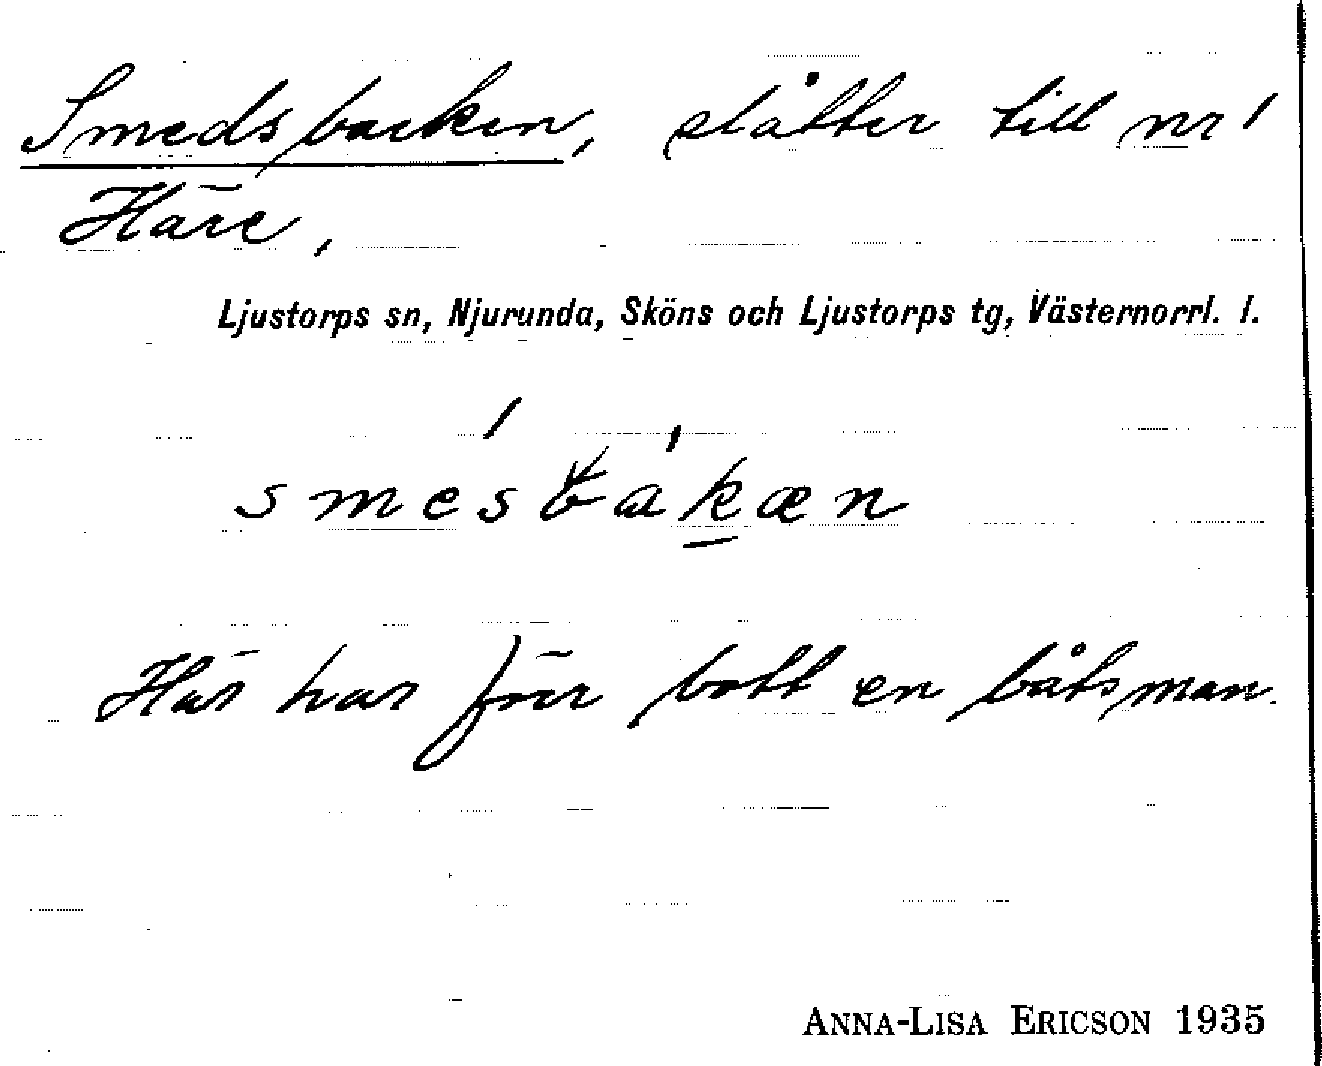 Smedsbacken, slåtter till nr 1
Häre,
Ljustorps sn, Njurunda, Sköns och Ljustorps tg, Västernorrl. l.
smesbakæn
Här har förr bott en båtsman.
ANNA-LISA ERICSON 1935